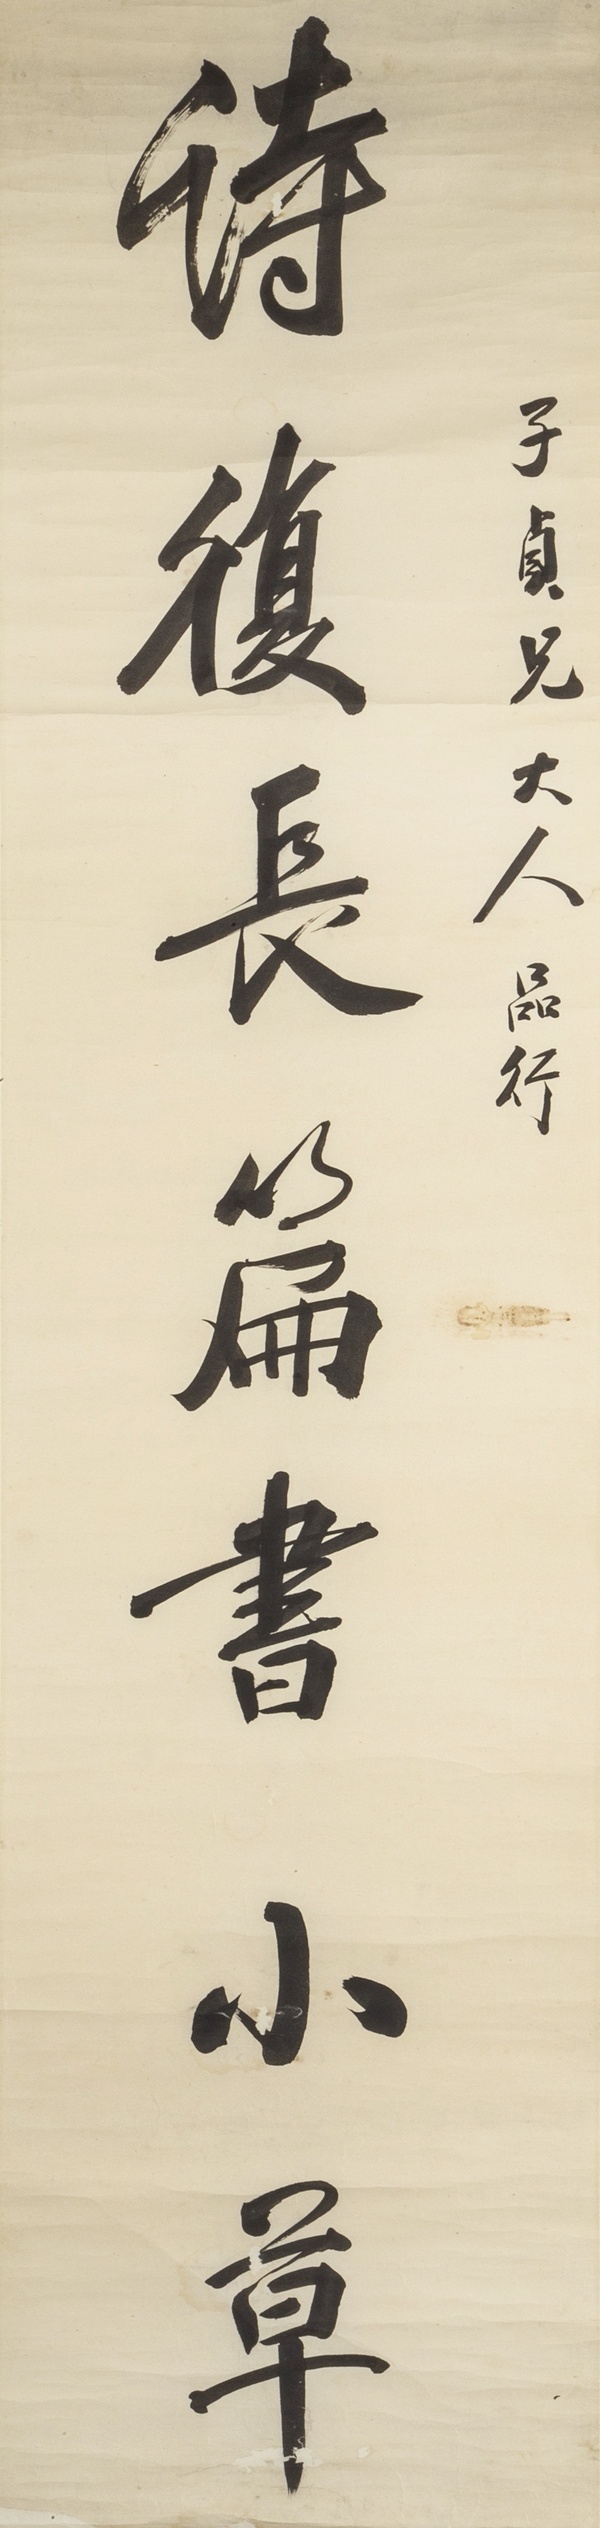 子貞兄大人品行
待復長篇書小草